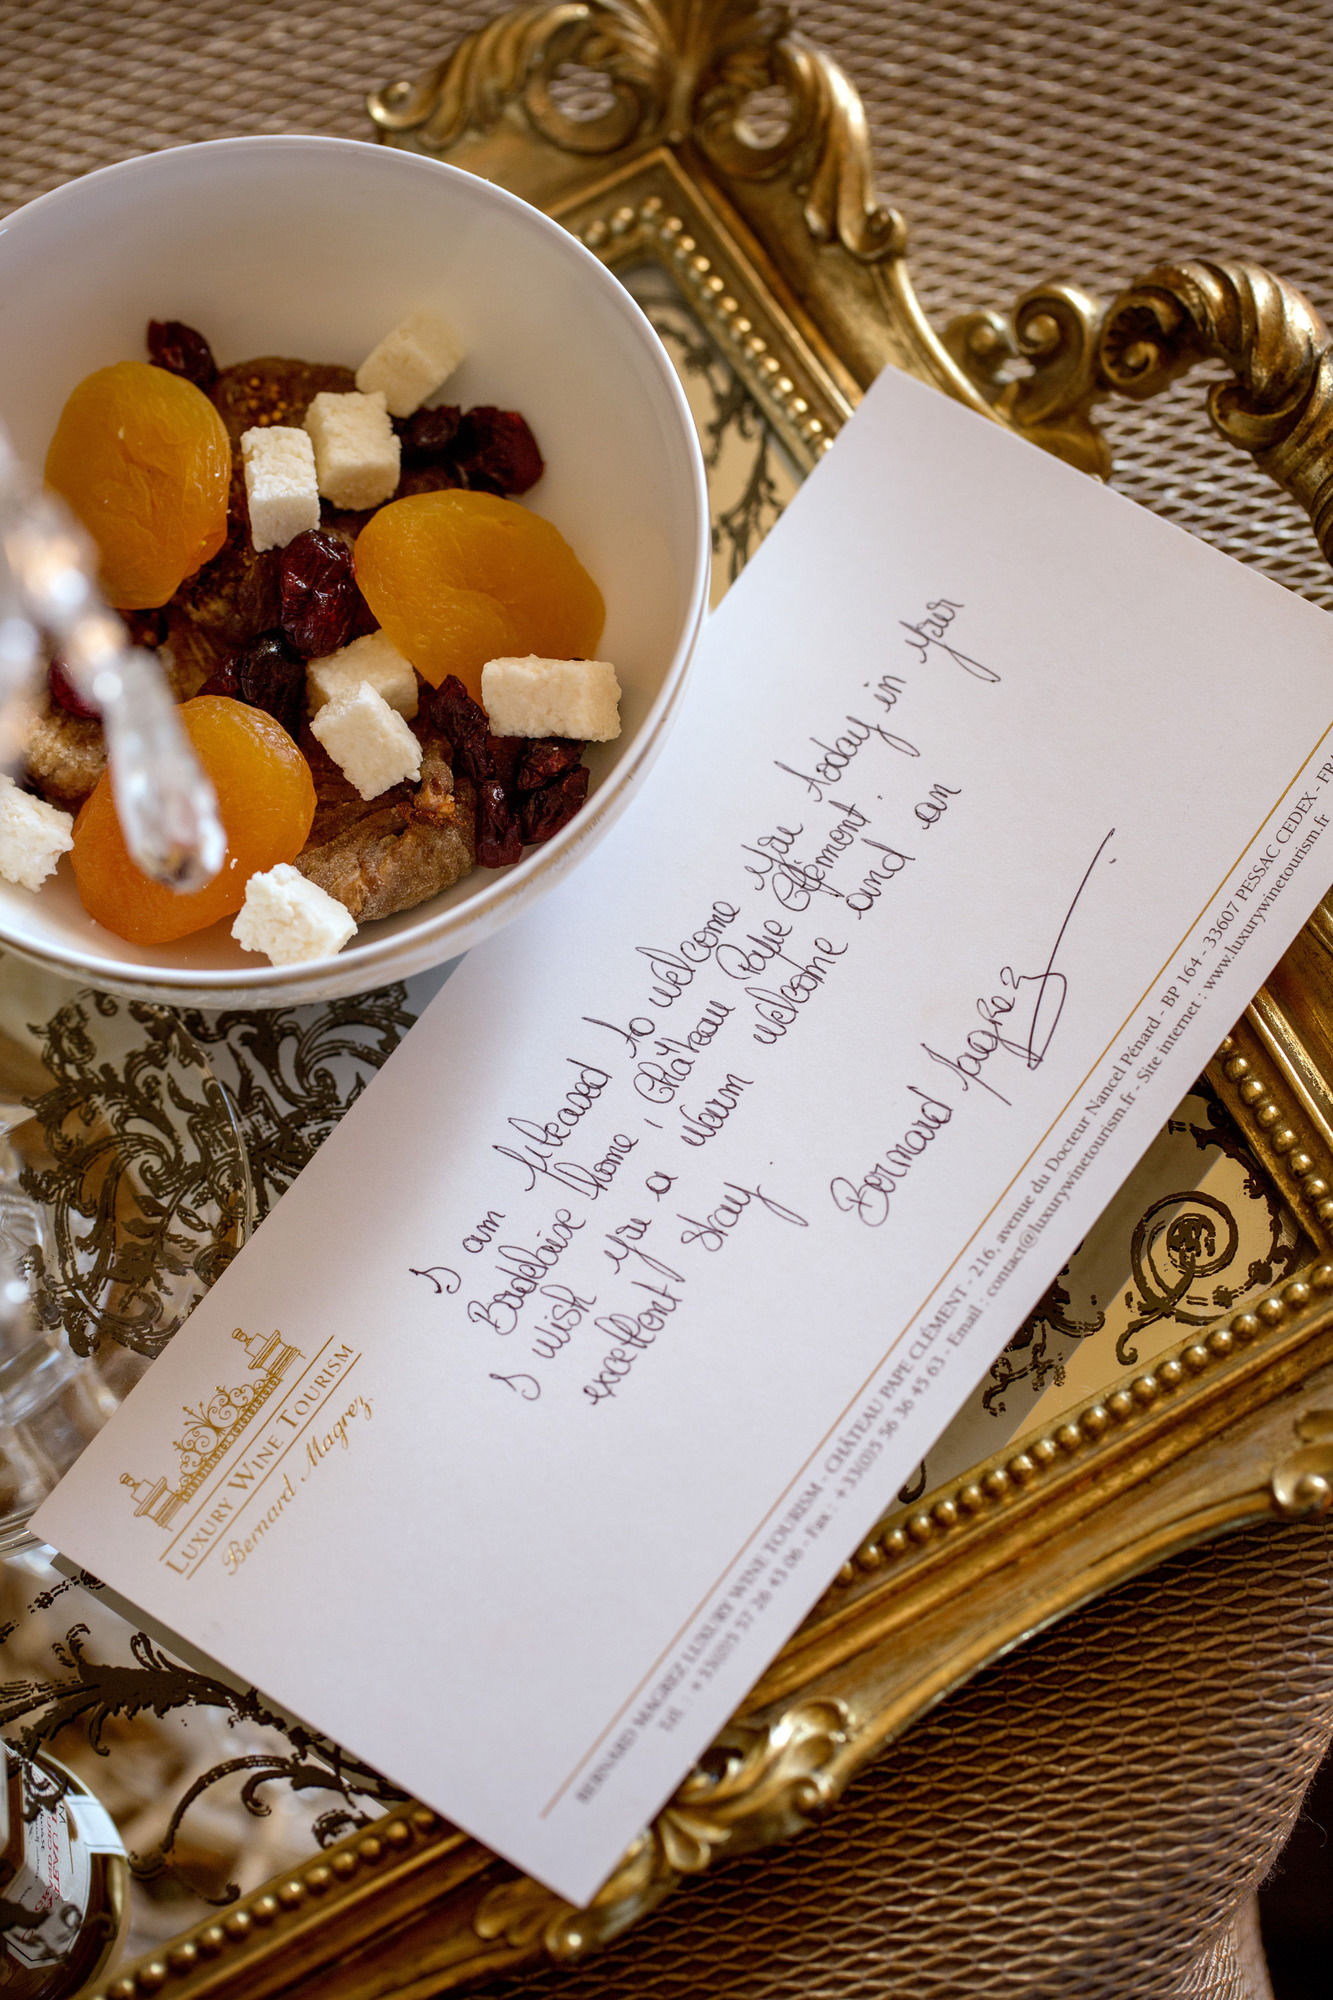 I am pleased to welcome you today in your
Bordelaise home, Château Pape Clément.
I wish you a warm welcome and an
excellent stay.
Bernard Magrez
LUXURY WINE TOURISM
Bernard Magrez
BERNARD MAGREZ LUXURY WINE TOURISM - CHÂTEAU PAPE CLÉMENT - 216, avenue du Docteur Nancel Pénard - BP 164 - 33607 PESSAC CEDEX - FRA
Tél. : +33(0)5 57 26 43 06 - Fax : +33(0)5 56 36 45 63 - Email : contact@luxurywinetourism.fr - Site internet : www.luxurywinetourism.fr